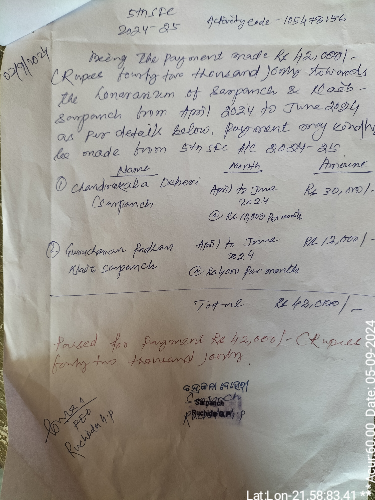 5th SFC
2024-25
Activity Code - 105473156
02/9/2024
Being the payment made Rs 42,000/-
(Rupees fourty two thousand) only towards
the honorarium of Sarpanch & Naib-
Sarpanch from April 2024 to June 2024
as per details below. payment may kindly
be made from 5th SFC A/C 2024-25
Name Month Amount
① Chandrakala Deheri April to June Rs 30,000/-
(Sarpanch 2024
@ Rs 10,000 Per month
② Pradhan April to June Rs 12,000/-
Naib Sarpanch 2024
@ per month
Total Rs 42,000/-
Passed for payment Rs 42,000/- (Rupees
fourty two thousand) only.
PEO
Ruchida G.P
Sarpanch
Ruchida G.P
Lat:Lon-21.58:83.41
Acur:60.00 Date, 05-09-2024